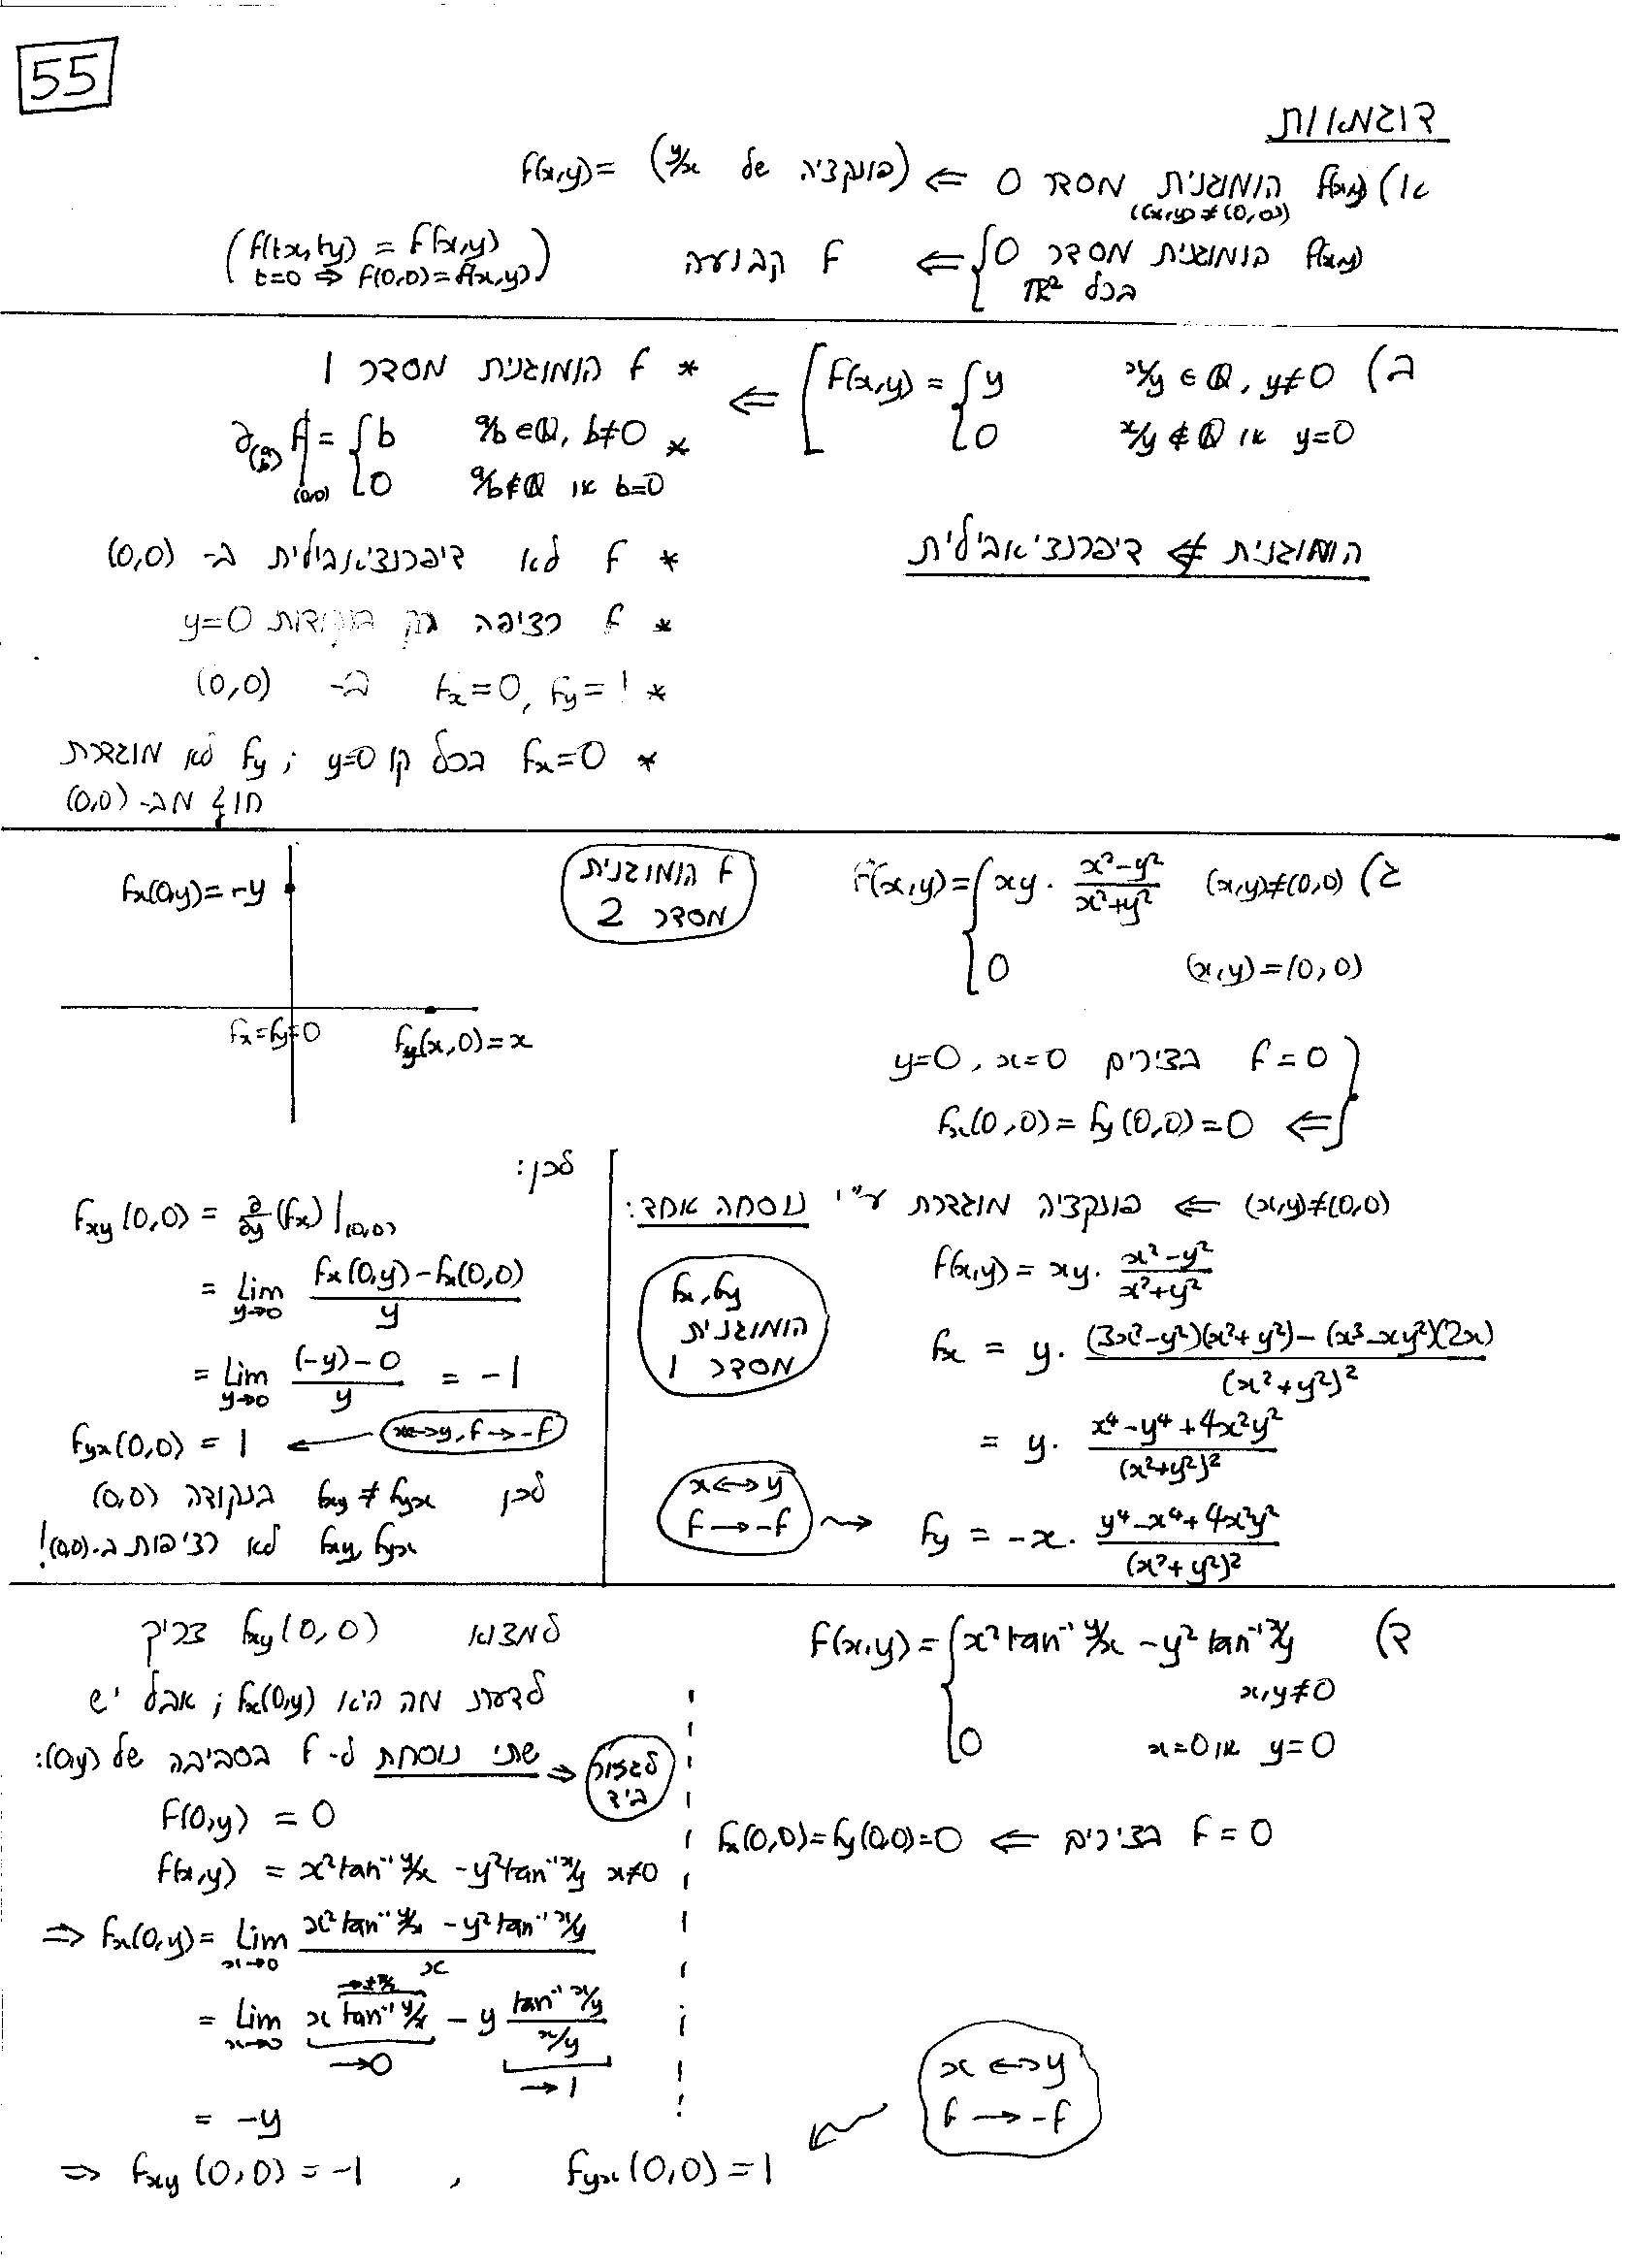 55
דוגמאות
א) f(x,y) הומוגנית מסדר 0 ⇐ (פונקציה של y/x) = f(x,y)
((x,y)≠(0,0))
f(x,y) הומוגנית מסדר 0 בכל ℝ² ⇐ f קבועה
(f(tx,ty) = f(x,y)
t=0 ⇒ f(0,0)=f(x,y))
ב) f(x,y) = { y   x/y ∈ ℚ, y≠0
0   x/y ∉ ℚ או y=0
⇐ * f הומוגנית מסדר 1
* ∂(a b) f|(0,0) = { b   a/b ∈ ℚ, b≠0
0   a/b ∉ ℚ או b=0
הומוגנית ⇍ דיפרנציאבילית
* f לא דיפרנציאבילית ב- (0,0)
* f רציפה רק בנקודות y=0
* fx=0, fy=1 ב- (0,0)
* fx=0 בכל קו y=0 ; fy לא מוגדרת
חוץ מב- (0,0)
ג) f(x,y) = { xy · (x²-y²)/(x²+y²)   (x,y)≠(0,0)
0   (x,y)=(0,0)
f הומוגנית
מסדר 2
fx(0,y)=-y
fx=fy=0
fy(x,0)=x
f=0 בצירים x=0, y=0
⇐ fx(0,0)=fy(0,0)=0
(x,y)≠(0,0) ⇐ פונקציה מוגדרת ע"י נוסחה אחד:
f(x,y) = xy · (x²-y²)/(x²+y²)
fx = y · ((3x²-y²)(x²+y²)-(x³-xy²)(2x))/(x²+y²)²
= y · (x⁴-y⁴+4x²y²)/(x²+y²)²
fy = -x · (y⁴-x⁴+4x²y²)/(x²+y²)²
fx, fy
הומוגנית
מסדר 1
x↔y
f→-f
לכן:
fxy(0,0) = ∂/∂y (fx)|(0,0)
= lim y→0 (fx(0,y)-fx(0,0))/y
= lim y→0 ((-y)-0)/y = -1
fyx(0,0) = 1 ← x↔y, f→-f
לכן fxy ≠ fyx בנקודה (0,0)
fxy, fyx לא רציפות ב-(0,0)!
ד) f(x,y) = { x² tan⁻¹ y/x - y² tan⁻¹ x/y
x,y≠0
0   x=0 או y=0
f=0 בצירים ⇐ fx(0,0)=fy(0,0)=0
למצוא fxy(0,0) צריך
לדעת מה היא fx(0,y) ; אבל יש
שתי נוסחת ל- f בסביבה של (0,y):
לגזור
ביד
f(0,y) = 0
f(x,y) = x² tan⁻¹ y/x - y² tan⁻¹ x/y x≠0
⇒ fx(0,y) = lim x→0 (x² tan⁻¹ y/x - y² tan⁻¹ x/y)/x
→±π/2
= lim x→0 x tan⁻¹ y/x - y (tan⁻¹ x/y)/(x/y)
→0   →1
= -y
⇒ fxy(0,0) = -1 , fyx(0,0) = 1
x↔y
f→-f